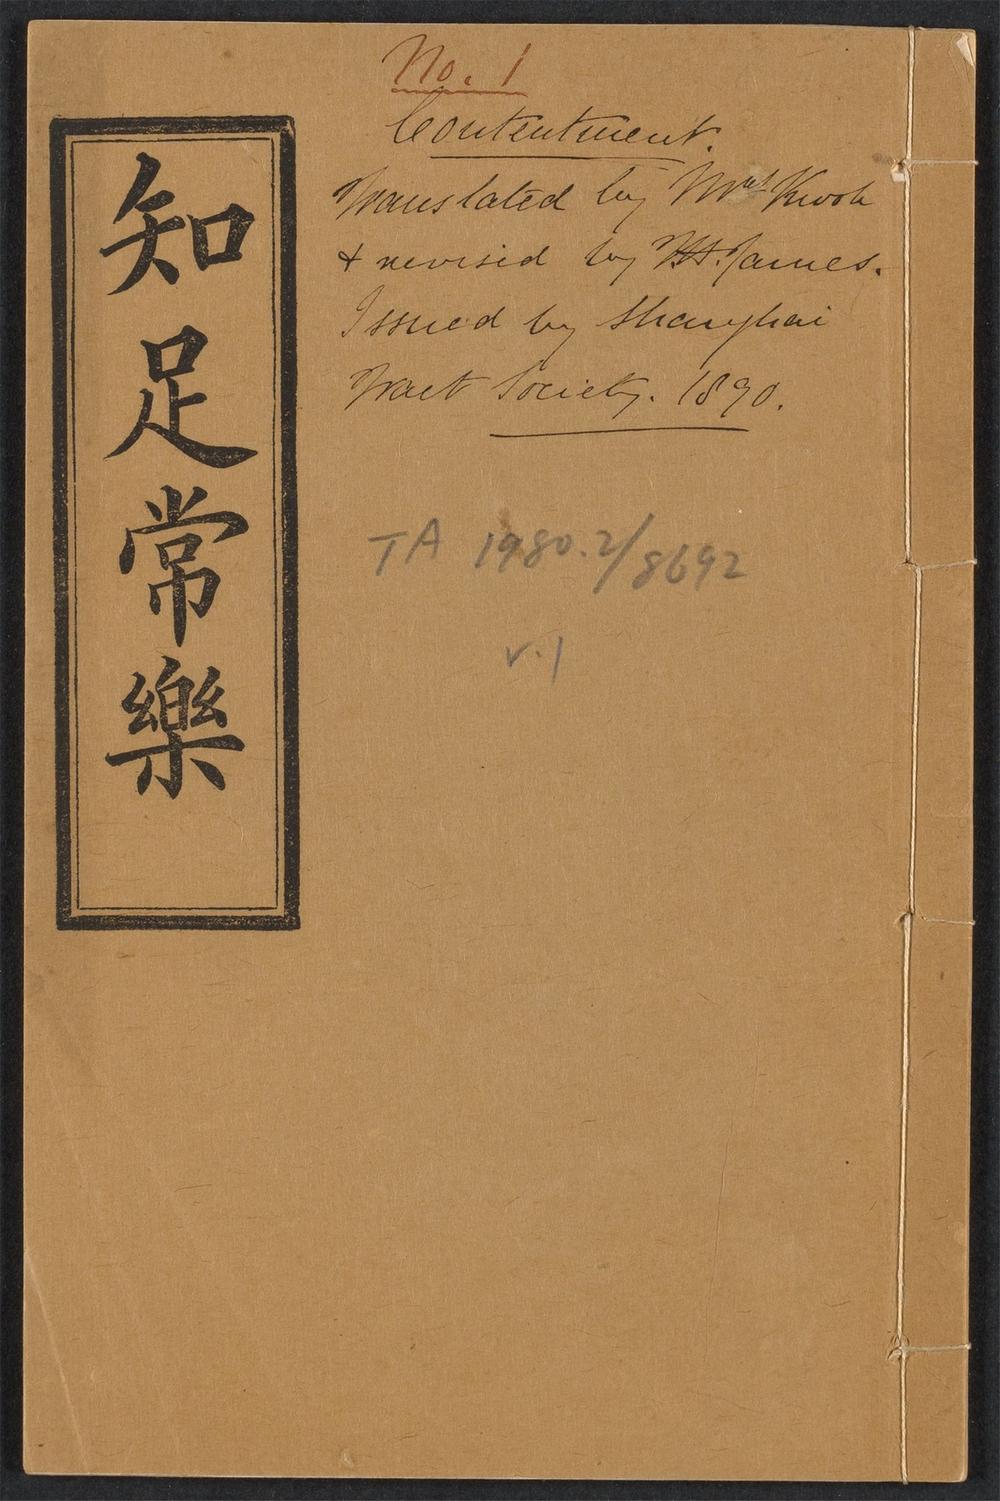 知足常樂
No. 1
Contentment.
Translated by Mrs Kwok
& revised by F.H. James.
Issued by Shanghai
Tract Society. 1890.
TA 1980.2/8692
v.1